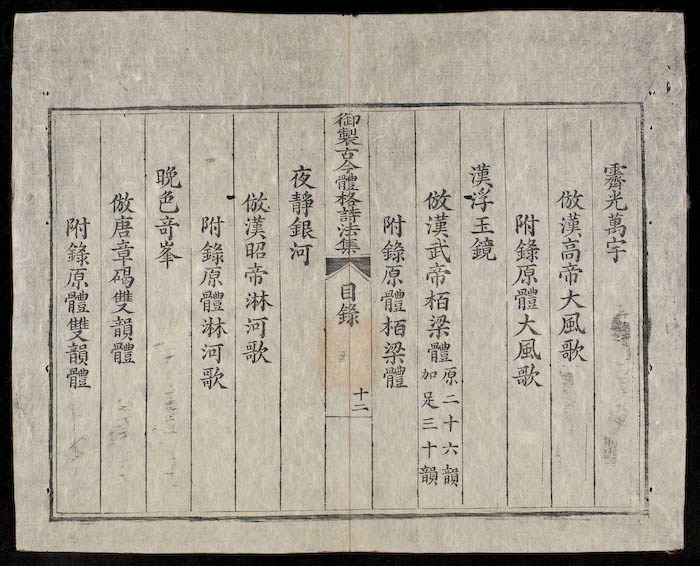 霽光萬宇
倣漢高帝大風歌
附錄原體大風歌
漢浮玉鏡
倣漢武帝栢梁體
原二十六韻
加足三十韻
附錄原體栢梁體
御製古今體格詩法集
目錄
十二
夜靜銀河
倣漢昭帝淋河歌
附錄原體淋河歌
晚色竒峯
倣唐章碣雙韻體
附錄原體雙韻體